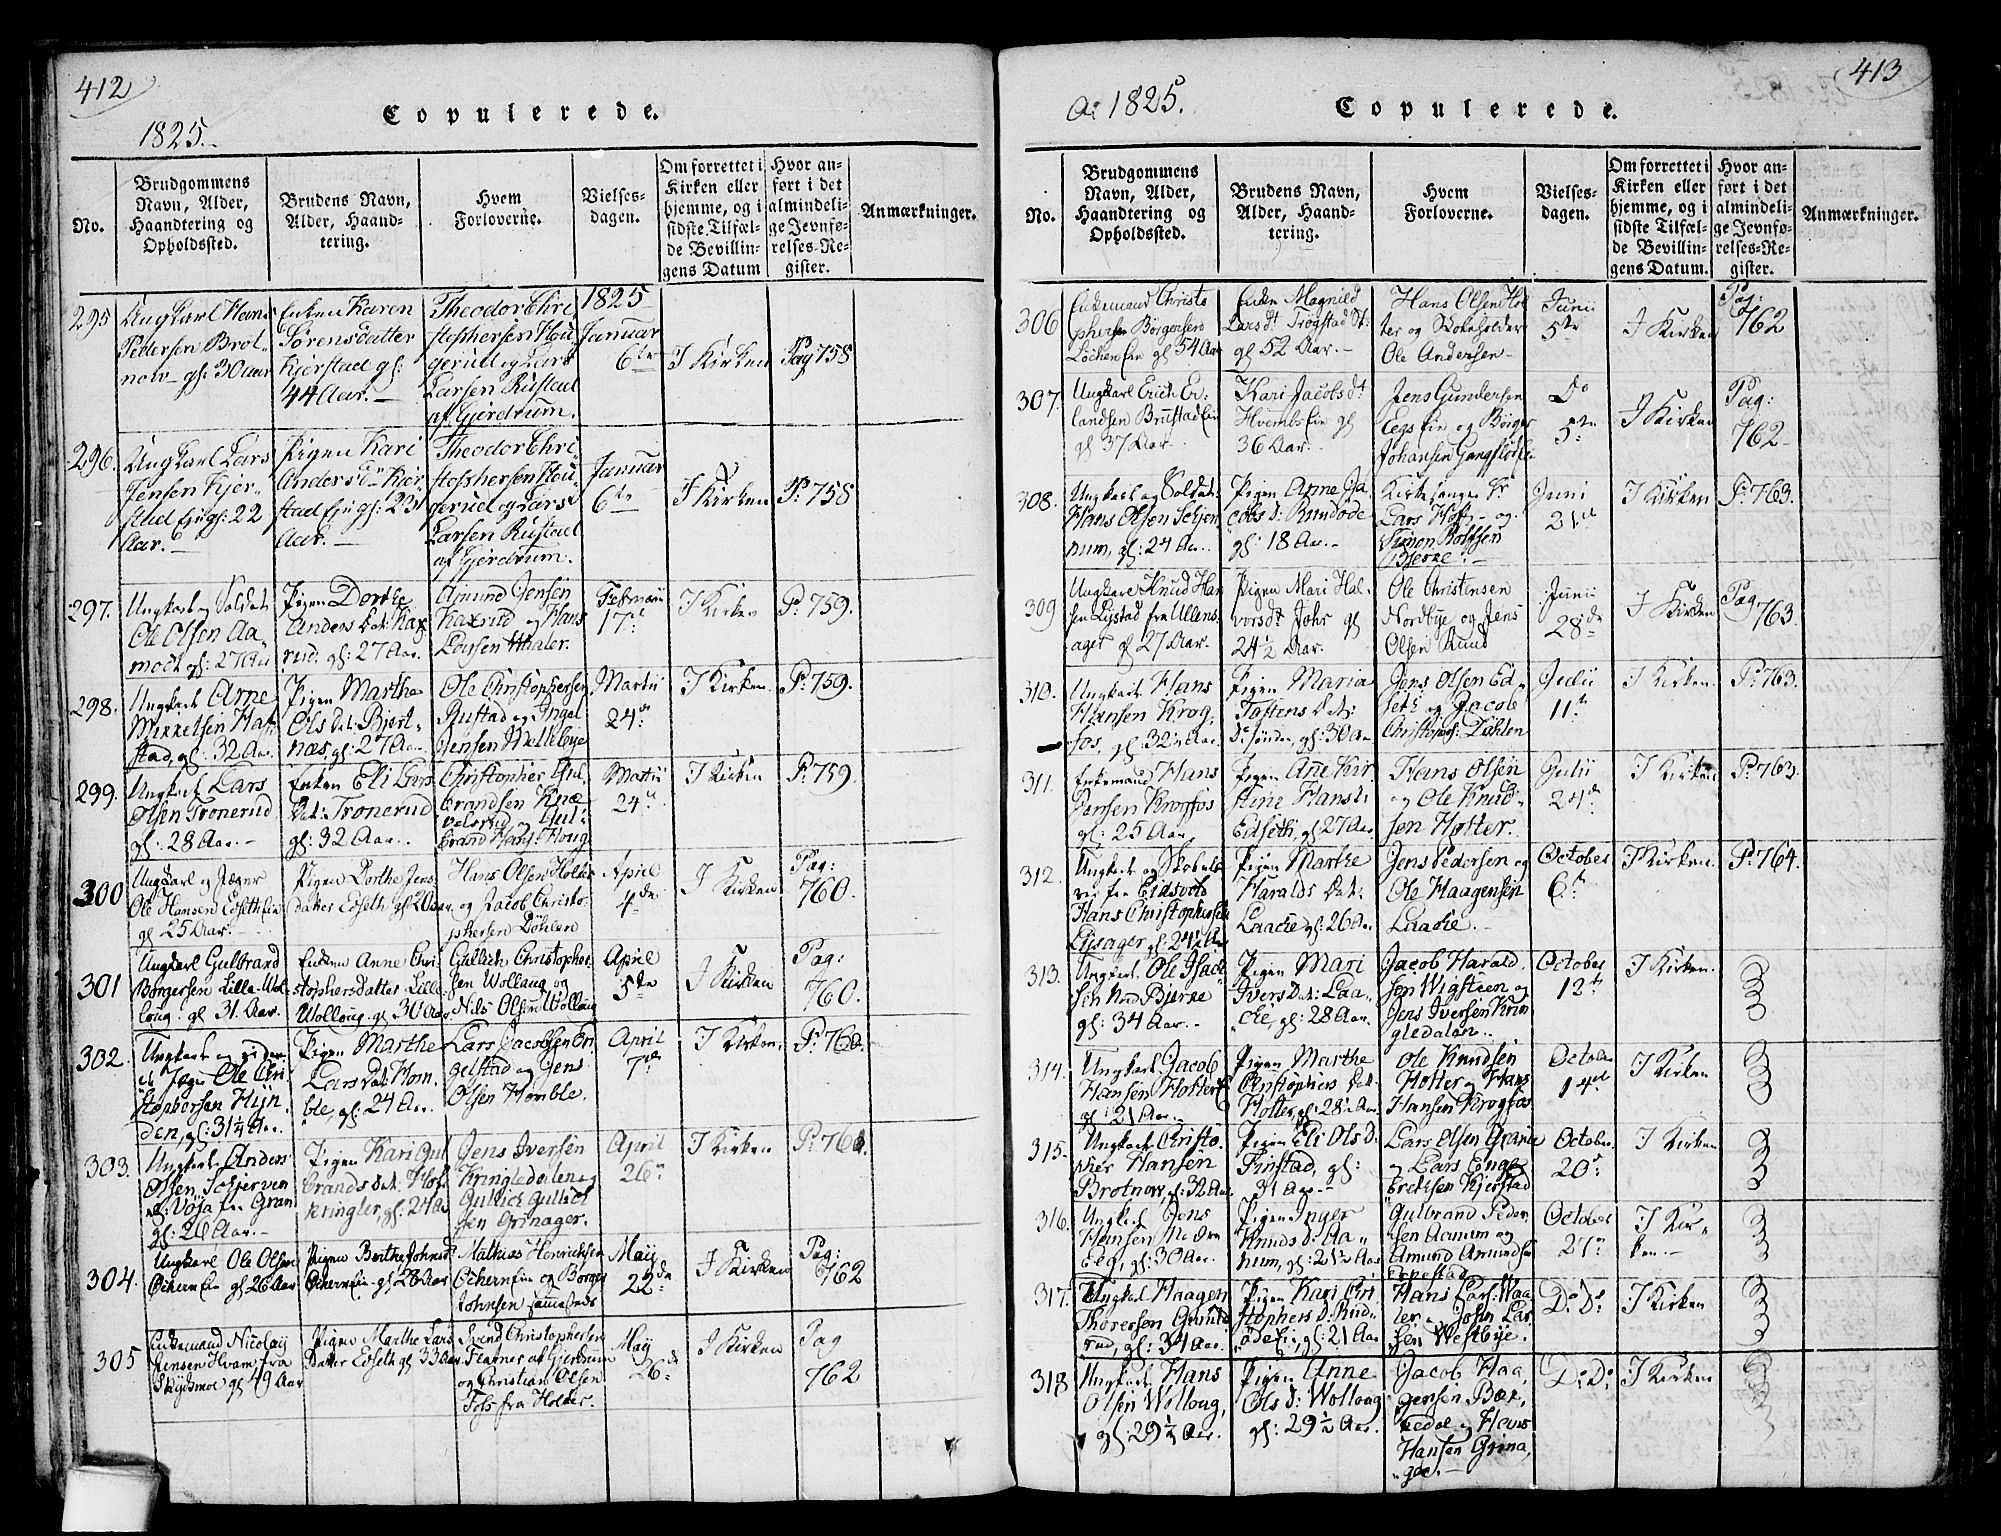 412
Copulerede.
1825.
No.
Brudgommens
Navn, Alder,
Haandtering og
Opholdssted.
Brudens Navn,
Alder, Haand-
tering.
Hvem
Forloverne.
Vielses-
dagen.
Om forrettet i
Kirken eller
hjemme, og i
sidste Tilfæl-
de Bevillin-
gens Datum
Hvor an-
ført i det
almindeli-
ge Jevnfø-
relses-Re-
gister.
Anmærkninger.
295
Ungkarl Hans
Pedersen Brot-
now gl: 30 aar
Enken Karen
Sörensdatter
Kjerstad gl:
44 Aar.
Theodor Chri
stophersen Hou
gerud og Lars
Larsen Rustad
af Gjerdrum.
1825
Januar
6te
I Kirken
Pag 758
296.
Ungkarl Lars
Jensen Kjer-
stad Eje gl: 22
Aar.
Pigen Kari
Andersdr Kjer
stad Eje gl: 23
Aar.
Theodor Chri
stophersen Hou
gerud og Lars
Larsen Rustad
af Gjerdrum.
Januar
6te
I Kirken
P: 758
297.
Ungkarl og Soldat
Ole Olsen Aa
modt gl: 27 Aar
Pigen Dorthe
Anders Dat:
gl: 27 Aar.
Amund Jensen
og Hans
Larsen Thaler.
Februarii
17de
I Kirken
P: 759.
298.
Ungkarl Arne
Mikkelsen
stad, gl: 32 Aar
Pigen Marthe
Ols Dat: Bjert-
næs, gl: 27 Aar
Ole Christophersen
Rustad og Ingel
Jensen Mellebye
Martii
24de
I Kirken.
P: 759.
299.
Ungkarl Lars
Olsen Tronerud
gl: 28 Aar.
Enken Eli Lars
Dat: Tronerud
gl: 32 Aar.
Christopher Gul
brandsen
og Gul-
brand Hans: Houg
Martii
24de
I Kirken
P: 759.
300
Ungkarl og Jæger
Ole Hansen Edseth Eie
gl 25 Aar.
Pigen Dorthe Jens
datter Edseth gl 20 Aar.
Hans Olsen Holter
og Jacob Christo
phersen Döhlen
April
4de
I Kirken
Pag:
760.
301
Ungkarl Gulbrand
Borgersen Lille-Wol-
loug gl 31 Aar.
Enken Anne Chri
stophersdatter Lille-
Wolloug gl 30 Aar
Gullich Christopher
sen Wolloug og
Nils Olsen Wolloug
April
5te
I Kirken
Pag:
760.
302.
Ungkarl og
Jæger Ole Chri
stophersen
den, gl: 31½ Aar.
Pigen Marthe
Lars Dat: Horn
ble, gl: 24 Aar.
Lars Jacobsen
og Jens
Olsen Homble.
April
7de
I Kirken.
P: 760.
303.
Ungkarl Anders
Olsen Schjerven
fra Gran
gl: 26 Aar.
Pigen Kari Gul
brands Dat:
Kringler, gl: 24 Aar
Jens Iversen
Kringledalen og
Gullich Gullich
sen Grinager.
April
26de
I Kirken
P: 761.
304.
Ungkarl Ole Olsen
Ochern Eie gl 26 Aar
Pigen Berthe Johnsd
Ochern Eie gl 28 Aar
Mathias Henrichsen
Ochern Eie og Borger
Johnsen sammesteds
May
22de
I Kirken
Pag:
762
305
Enkemand Nicolay
Jensen Hvam fra
Skydsmoe gl 49 Aar
Pigen Marthe Lars
Datter Edseth gl 33 Aar
Svend Christophersen
Flatnes af Gjerdrum
og Christian Olsen
Foss fra Holter.
May
26de
I Kirken
Pag
762
413
Ao 1825.
Copulerede.
No.
Brudgommens
Navn, Alder,
Haandtering og
Opholdssted.
Brudens Navn,
Alder, Haand-
tering.
Hvem
Forloverne.
Vielses-
dagen.
Om forrettet i
Kirken eller
hjemme, og i
sidste Tilfæl-
de Bevillin-
gens Datum.
Hvor an-
ført i det
almindeli-
ge Jevnfø-
relses-Re-
gister.
Anmærkninger.
306
Enkemand Christo
phersen Borgersen
Löchen Eie gl 54 Aar
Enke Magnild
Larsdt Trögstad
gl 52 Aar.
Hans Olsen Hol
ter og Skoleholder
Ole Andersen
Junii
5te
I Kirken
Pag:
762
307.
Ungkarl Erich Er-
landsen Brustad Eie
gl 37 Aar.
Kari Jacobsdt
Hvembs Eie gl
36 Aar.
Jens Gundersen
Eegs Eie og Börger
Johansen
Do
5te
I Kirken
Pag:
762
308.
Ungkarl og Soldat
Hans Olsen Schjen
num, gl: 24 Aar.
Pigen Anne Ja
cobs D: Rundode
gl: 18 Aar.
Kirkesanger Hr
Lars Hoft og
Simon
Bjerke.
Juni
21de
I Kirken
P: 763.
309
Ungkarl Knud Han
sen Lystad fra Ullens
ager gl 27 Aar.
Pigen Mari Hal
vorsdt Johr gl
24½ Aar.
Ole Christensen
Nordbye og Jens
Olsen Ruud
Junii
28de
I Kirken
Pag
763.
310.
Ungkarl Hans
Hansen Krog-
fos, gl: 32½ Aar.
Pigen Maria
Tostens Dat:
gl: 30 Aar
Jens Olsen Ed-
seth og Jacob
Christoph: Döhlen
Julii
11te
I Kirken.
P: 763.
311.
Enkemand Hans
Jensen Krogfos
gl: 25 Aar
Pigen Ane Kir
stine Hansd:
Edseth, gl: 27 Aar
Hans Olsen
og Ole Knud-
sen Holter.
Julii
24de
I Kirken.
P: 763.
312.
Ungkarl og
fra Eidsvold
Hans Christophersen
Lysager gl: 24½ Aar
Pigen Marthe
Haralds Dat:
Laache gl: 26 Aar
Jens Pedersen og
Ole Haagensen
Laache.
October
6te
I Kirken.
P: 764.
313.
Ungkarl Ole Isach
sen Bjerke
gl: 34 Aar.
Pigen Mari
Ivers Dat: Laa-
che, gl: 28 Aar.
Jacob Harald
sen Wigsteen og
Jens Iversen Krin
gledalen.
October
12te
I Kirken.
314.
Ungkarl Jacob
Hansen Holter
gl: 21 Aar.
Pigen Marthe
Christophers Dat:
Holter, gl: 28½ Aar
Ole Knudsen
Holter og Hans
Hansen Krogfos
October
I Kirken
315.
Ungkarl Christo-
pher Hansen
Brotnow, gl: 32 Aar
Pigen Eli Ols D:
Finstad, gl:
31 Aar.
Lars Olsen
og Lars
Erichsen Kjerstad
October
20de
I Kirken
316.
Ungkarl Jens
Hansen
Eeg, gl: 30 Aar.
Pigen Inger
Knuds D: Aa-
num, gl: 21½ Aar
Gulbrand Peder
sen Aanum og
Amund Amundsen
October
27de
I Kir-
ken.
317.
Ungkarl Haagen
Thoresen
rud, gl: 34 Aar.
Pigen Kari Chri
stophers D: Rud-
öde Ei, gl: 21 Aar
Hans Lars: Waa
ler og John Lar
sen Westbye.
Do Do
I Kirken
318
Ungkarl Hans
Olsen Wolloug,
gl: 29½ Aar.
Pigen Anne
Ols D: Wolloug
gl: 29½ Aar.
Jacob Haa
gensen Bæk
kedal og Hans
Hansen Grina,
ger.
Do Do
I Kirken